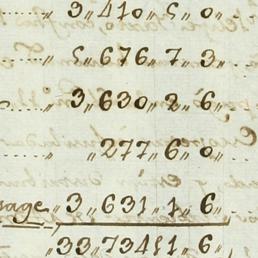 „ 3„410„5„0„
„ 5„676„7„3„
„ 3„630„2„6„
„ „277„6„0„
sage „3„631„1„6„
„33„734§1„6„